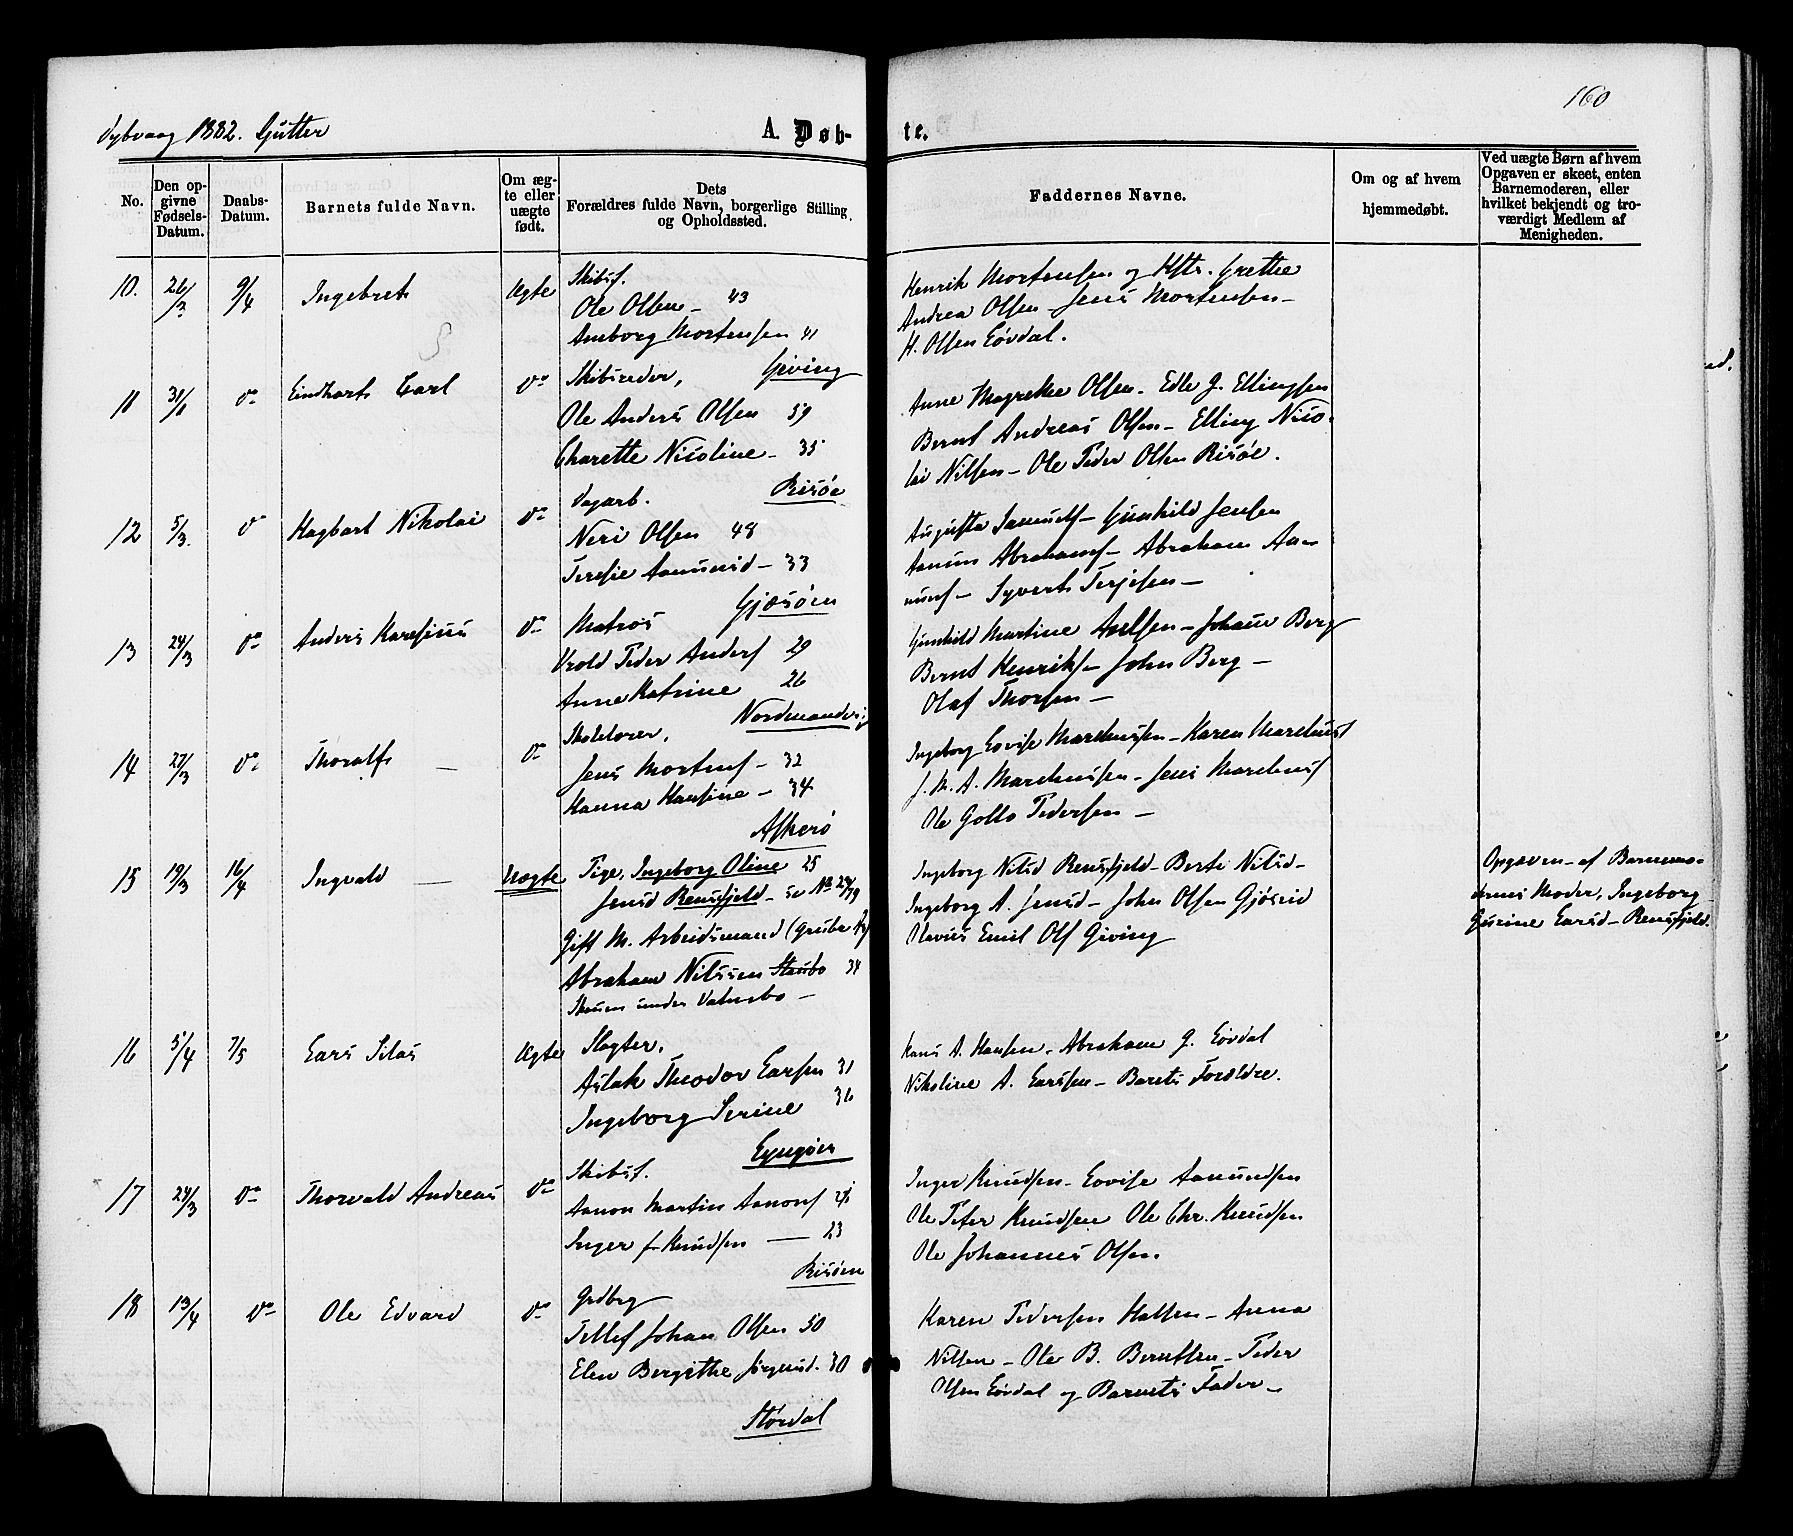 160
Dybvaag 1882. Gutter
A. Døb-
te.
No.
Den op-
givne
Fødsels-
Datum.
Daabs-
Datum.
Barnets fulde Navn.
Om æg-
te eller
uægte
født.
Dets
Forældres fulde Navn, borgerlige Stilling
og Opholdssted.
Faddernes Navne.
Om og af hvem
hjemmedøbt.
Ved uægte Børn af hvem
Opgaven er skeet, enten
Barnemoderen, eller
hvilket bekjendt og tro-
værdigt Medlem af
Menigheden.
10. 26/3 9/4 Ingebret Ægte Skibsf.
Ole Olsen - 43
Amborg Mortensen 41
Giving
Henrik Mortensen og Hstr. Grethe
Andrea Olsen - Jens Mortensen -
H. Olsen Løvdal.
11 31/1 do Eindhart Carl do Skibsreder,
Ole Anders Olsen 59
Charette Nicoline - 35
Risøe
Anne Magrethe Olsen - Edle J. Ellingsen
Bernt Andreas Olsen - Elling Nico-
lai Nilsen - Ole Peder Olsen Risøe.
12 5/3. do Hagbart Nikolai do Dagarb.
Neri Olsen 48
Teresie Aamunsd - 33
Gjæsøen
Augusta Samuels - Gunhild Jensen
Aanun Abrahams - Abraham Aa-
nuns - Syvert Terjesen -
13 24/3 do Anders Karesius do Matros
Vrold Peder Anders 29
Anne Katrine 26
Nordmandvig
Gunhild Martine Axelsen - Johanne Berg
Bernt Henriks - John Berg -
Olaf Thorsen -
14 27/3 do Thoralf - do Skolelærer,
Jens Mortens - 32
Hanna Hansine - 34
Askerø
Ingeborg Lovise Marchussen - Karen Marchuss
J. M. A. Marchussen - Jens Marchuss
Ole Gotto Pedersen -
15 19/3 16/4 Ingvald - Uægte Pige, Ingeborg Oline 25
Jensd Rensfjeld - se No 29/79
Gift M. Arbeidsmand (Grube A)
Abraham Nilssen Staubo 34
Skauen under Vatnebo -
Ingeborg Nilsd Rensfjeld - Berte Nilsd -
Ingeborg A. Jensd - John Olsen Gjøseid
Olavius Emil Ols Giving
Opgaven - af Barnemo-
derens Moder, Ingeborg
Gurine Larsd - Rensfjeld.
16 5/4 7/5 Lars Silas Ægte Slagter,
Aslak Theodor Larsen 31
Ingeborg Serine 36
Lyngøer
Hans A. Hansen - Abraham G. Løvdal
Nikoline A. Larssen - Barnets Forældre.
17 24/3 do Thorvald Andreas do Skibsf.
Aanon Martin Aanons
Inger f. Knudsen - 23
Risøen
Inger Knudsen - Lovise Aamundsen
Ole Peter Knudsen Ole Chr. Knudsen
Ole Johannes Olsen.
18 13/4 do Ole Edvard do Grdbrg
Tellef Johan Olsen 50
Elen Bergithe Jørgensd. 30
Størdal
Karen Pedersen Halsen - Anna
Nilsen - Ole B. Berntsen - Peder
Olsen Løvdal og Barnets Fader -